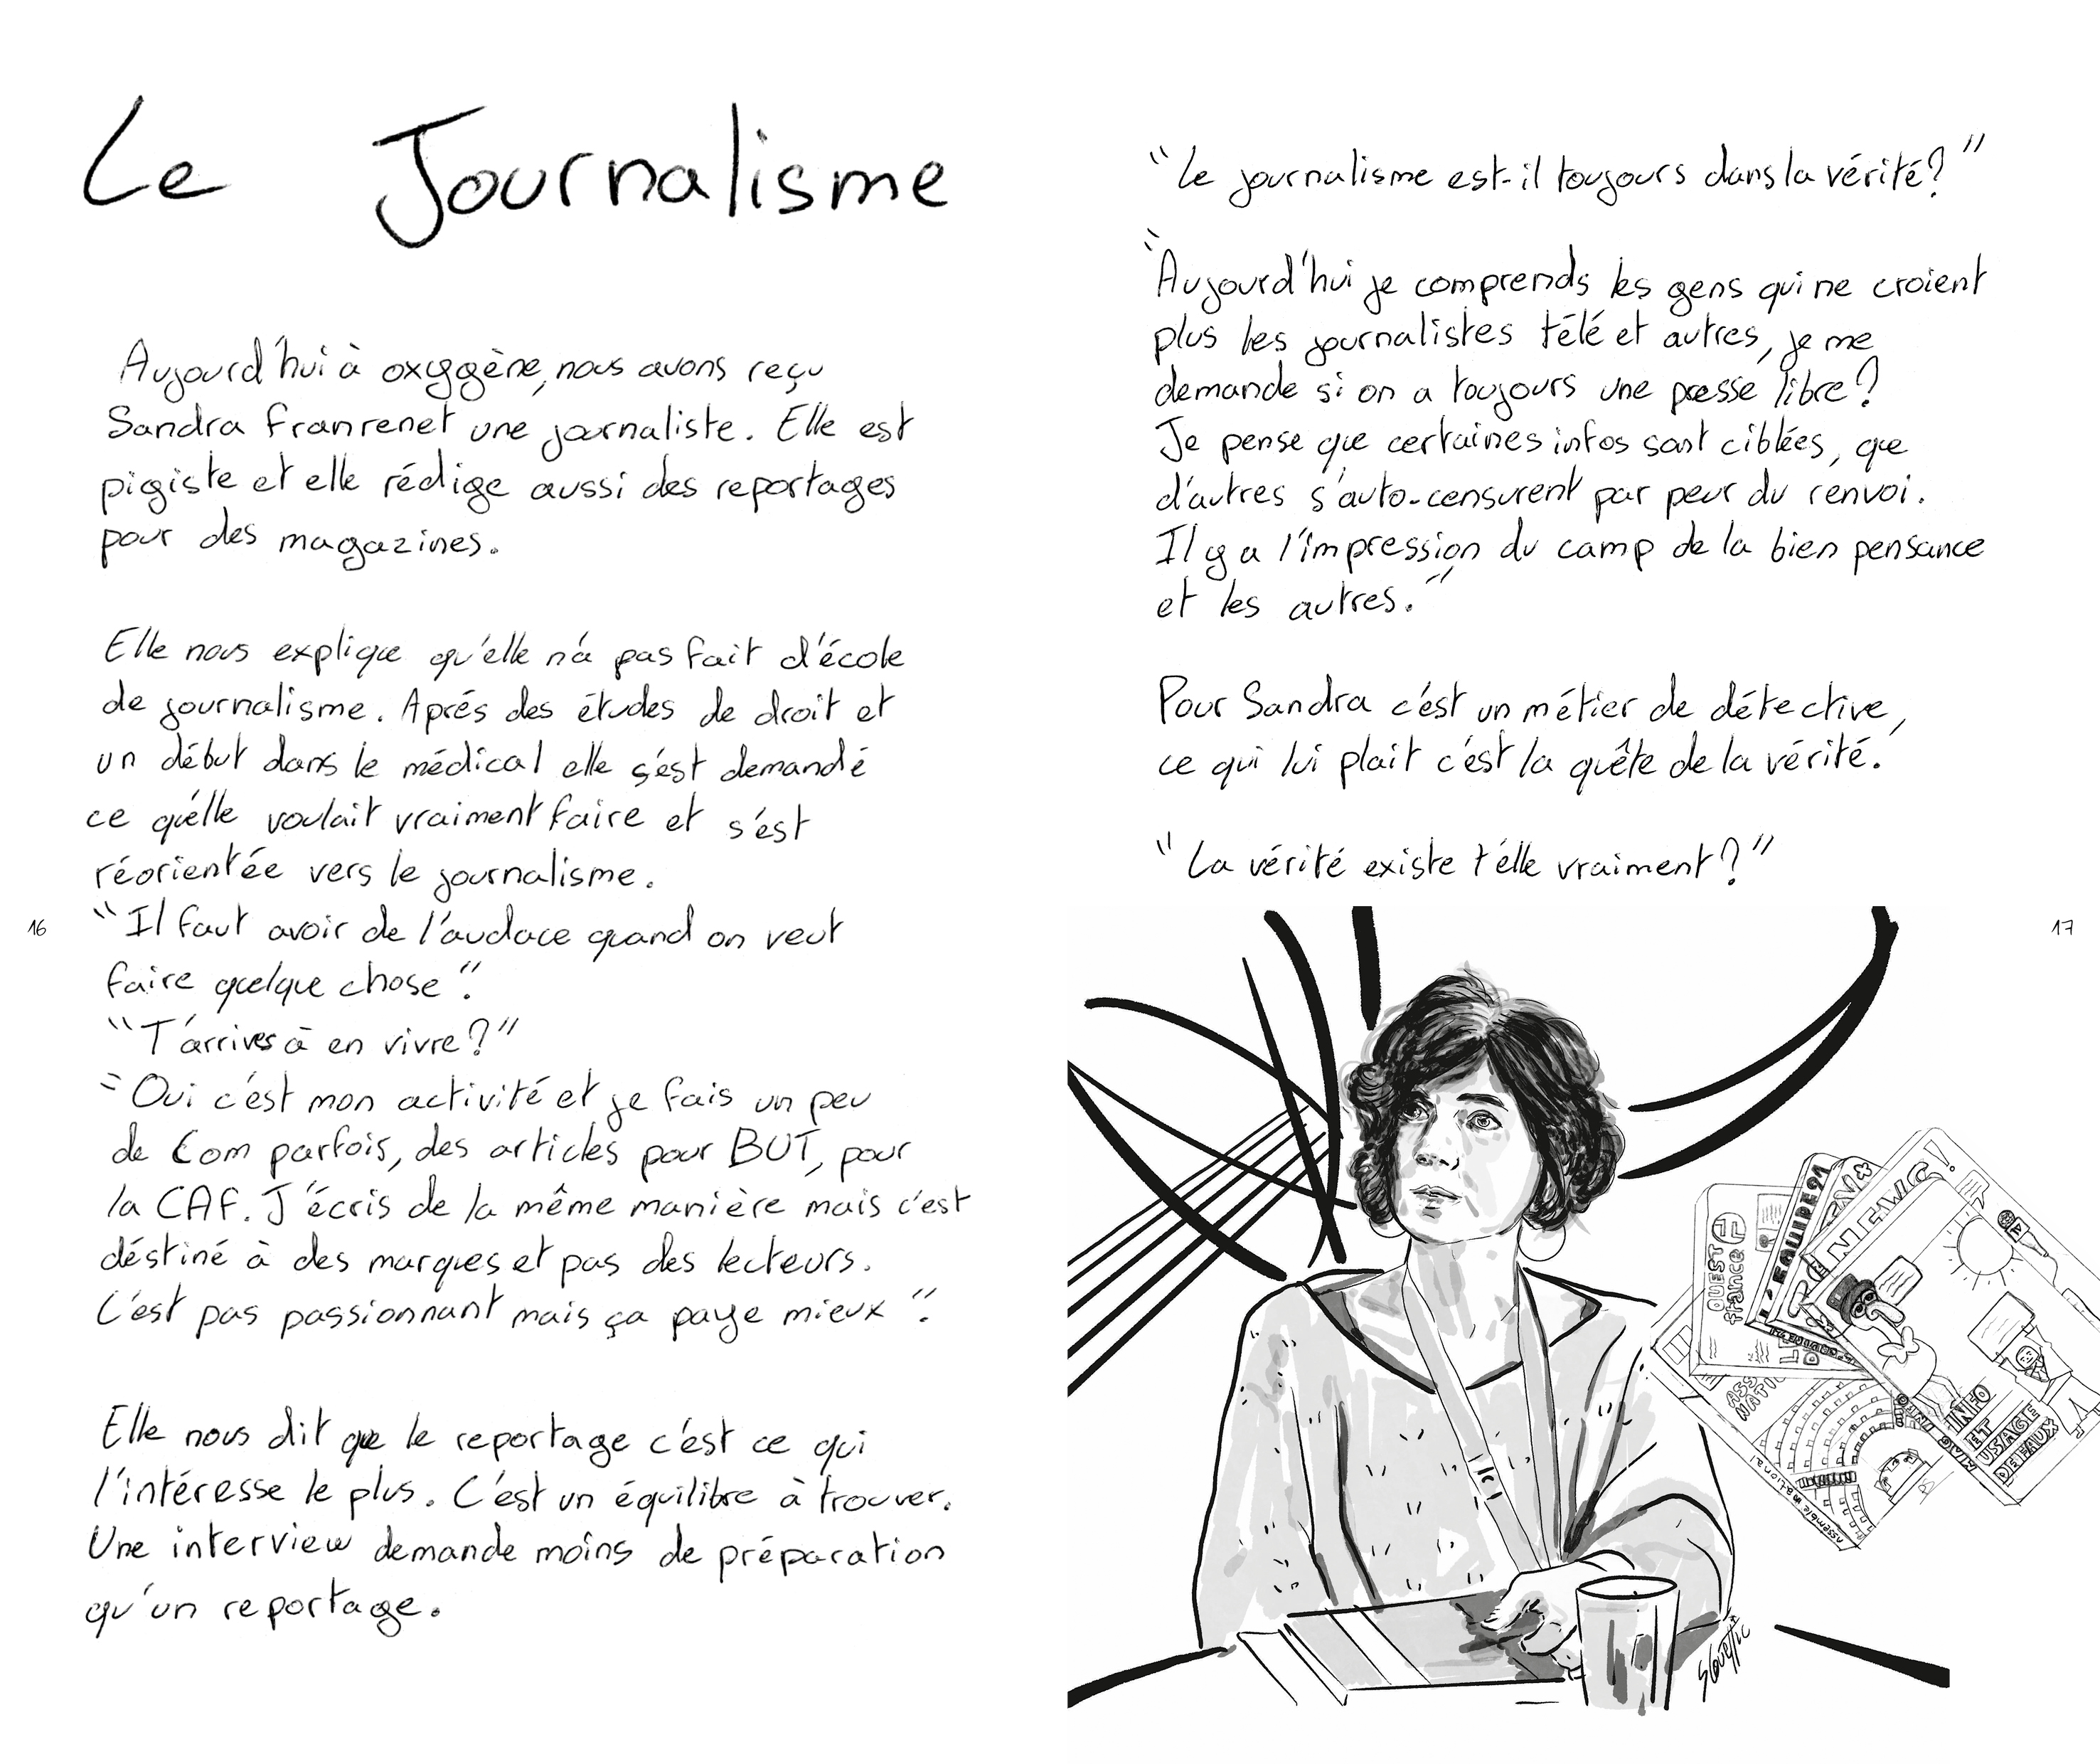 Le Journalisme
Aujourd'hui à oxygène, nous avons reçu
Sandra Franrenet une journaliste. Elle est
pigiste et elle rédige aussi des reportages
pour des magazines.
Elle nous explique qu'elle n'a pas fait d'école
de journalisme. Aprés des études de droit et
un début dans le médical elle s'est demandé
ce qu'elle voulait vraiment faire et s'est
réorientée vers le journalisme.
"Il faut avoir de l'audace quand on veut
faire quelque chose".
"T'arrives à en vivre?"
"Oui c'est mon activité et je fais un peu
de Com parfois, des articles pour BUT, pour
la CAF. J'écris de la même manière mais c'est
déstiné à des marques et pas des lecteurs.
C'est pas passionnant mais ça paye mieux".
Elle nous dit que le reportage c'est ce qui
l'intéresse le plus. C'est un équilibre à trouver.
Une interview demande moins de préparation
qu'un reportage.
16
"Le journalisme est-il toujours dans la vérité?"
"Aujourd'hui je comprends les gens qui ne croient
plus les journalistes télé et autres, je me
demande si on a toujours une presse libre?
Je pense que certaines infos sont ciblées, que
d'autres s'auto-censurent par peur du renvoi.
Il y a l'impression du camp de la bien pensance
et les autres."
Pour Sandra c'est un métier de détective,
ce qui lui plait c'est la quête de la vérité.
"La vérité existe t'elle vraiment?"
17
OUEST
france
NEWS!
INFO
ET
USAGE
DE FAUX
assemblé national